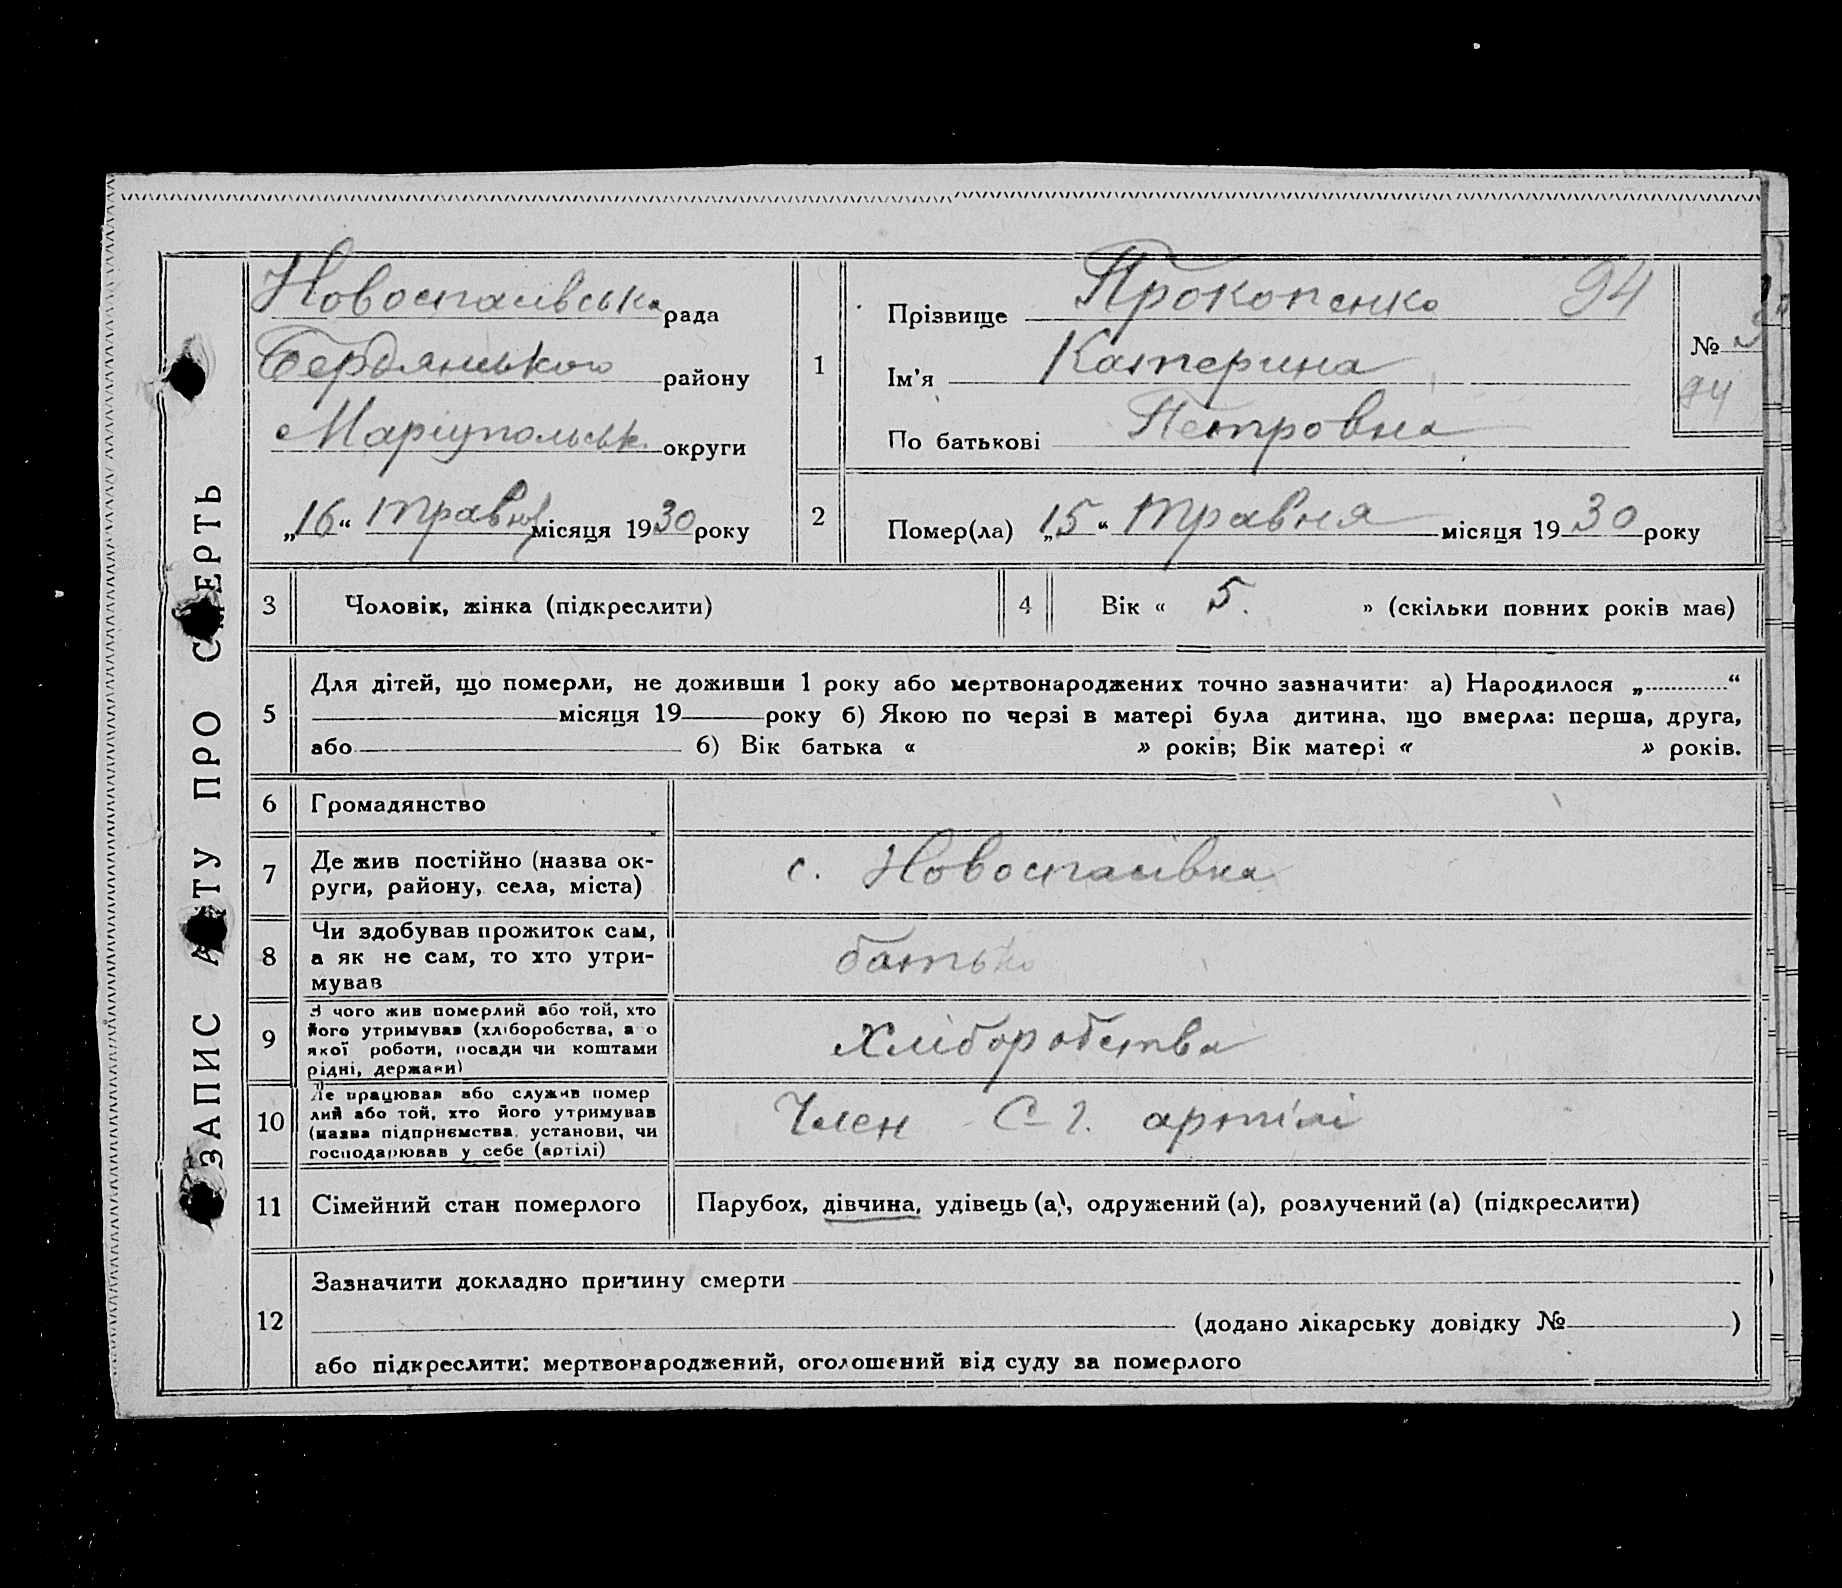 ЗАПИС АКТУ ПРО СМЕРТЬ
Новоспасівська рада
Бердянського району
Маріупольськ. округи
„16“ травня місяця 1930 року
1
Прізвище Прокопенко 94
Ім'я Катерина
По батькові Петровна
№
94
2
Помер(ла) „15“ травня місяця 1930 року
3 Чоловік, жінка (підкреслити)
4 Вік « 5. » (скільки повних років має)
5
Для дітей, що померли, не доживши 1 року або мертвонароджених точно зазначити: а) Народилося „ “
місяця 19 року б) Якою по черзі в матері була дитина, що вмерла: перша, друга,
або б) Вік батька « » років; Вік матері « » років.
6 Громадянство
7
Де жив постійно (назва ок-
руги, району, села, міста)
с. Новоспасівка
8
Чи здобував прожиток сам,
а як не сам, то хто утри-
мував
батько
9
З чого жив померлий або той, хто
його утримував (хліборобства, а о
якої роботи, посади чи коштами
рідні, держави)
Хліборобства
10
Де працював або служив помер
лий або той, хто його утримував
(назва підприємства, установи, чи
господарював у себе (артілі)
Член С-г. артілі
11 Сімейний стан померлого
Парубок, дівчина, удівець (а), одружений (а), розлучений (а) (підкреслити)
12
Зазначити докладно причину смерти
(додано лікарську довідку № )
або підкреслити: мертвонароджений, оголошений від суду за померлого